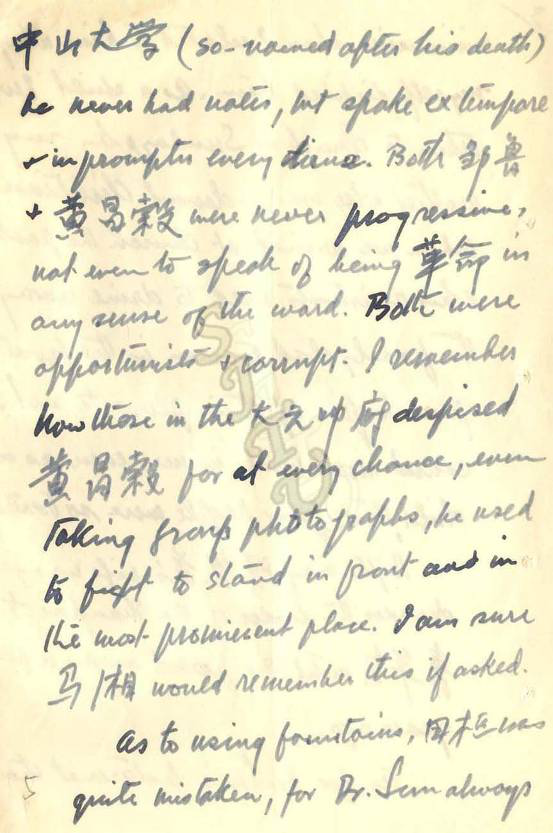 中山大学 (so-named after his death)
he never had notes, but spoke extempore
+ impromptu every time. Both 邹鲁
+ 黄昌穀 were never progressive,
not even to speak of being 革命 in
any sense of the word. Both were
opportunists + corrupt. I remember
how those in the 大元帅府 despised
黄昌穀 for at every chance, even
taking group photographs, he used
to fight to stand in front and in
the most prominent place. I am sure
马湘 would remember this if asked.
As to using fountains, 田桓 was
5 quite mistaken, for Dr. Sun always